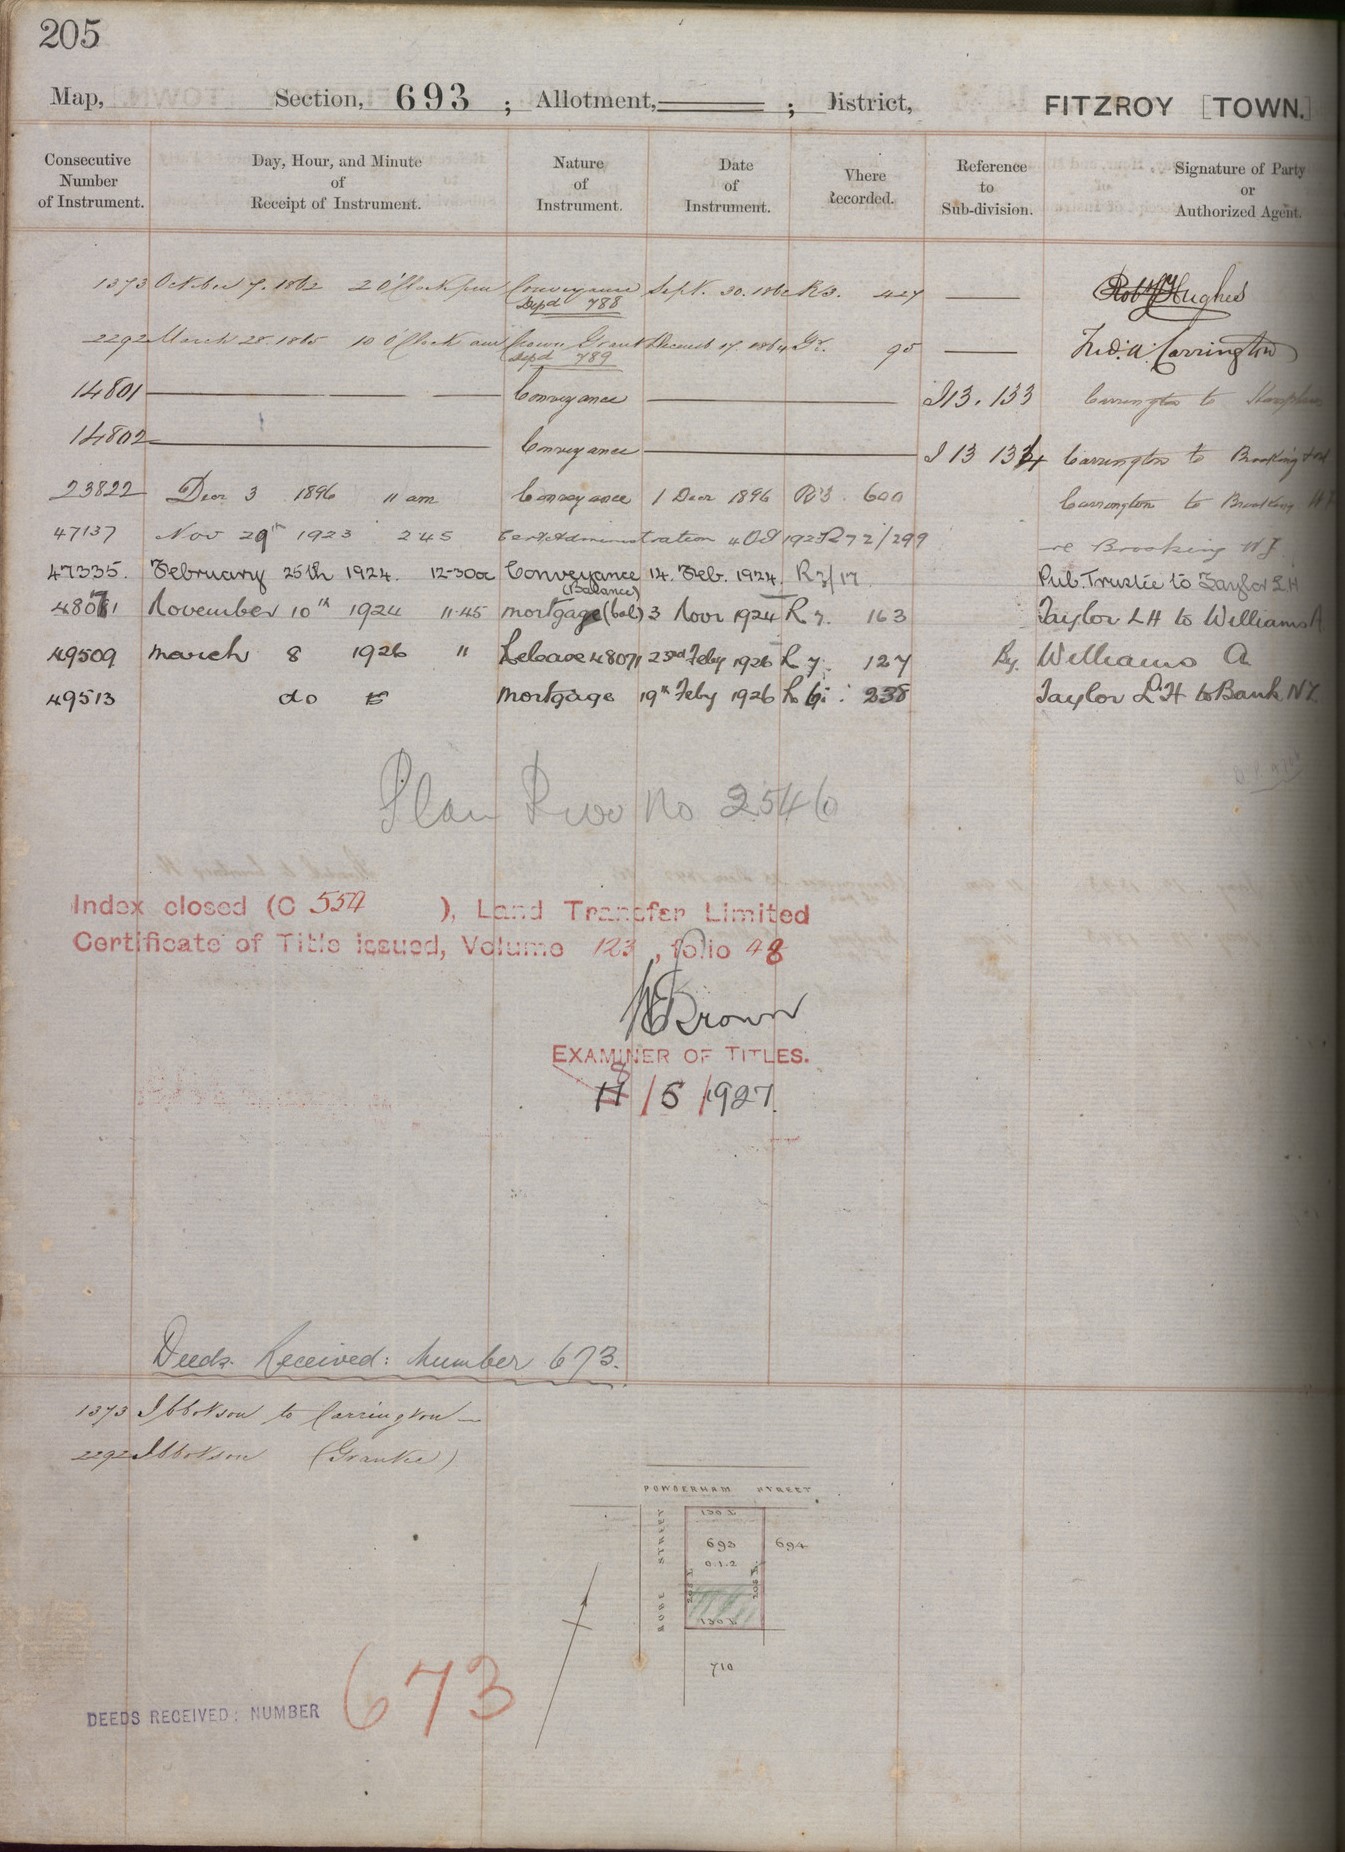 205
Map, Section, 693 ; Allotment, ; District, FITZROY [TOWN.]
Consecutive Number of Instrument.
Day, Hour, and Minute of Receipt of Instrument.
Nature of Instrument.
Date of Instrument.
Where Recorded.
Reference to Sub-division.
Signature of Party or Authorized Agent.
1373 October 7. 1862 2 O'Clock pm Conveyance Sept. 30. 1862 R3. 427 Robt Hughes
Depd 788
2292 March 28. 1865 10 O'Clock am Crown Grant 17. 1864 Gr. 95 Fred. A. Carrington
Depd 789
14801 Conveyance I13. 133 Carrington to
14802 Conveyance I 13 134 Carrington to Brooking
23822 Decr 3 1896 11 am Conveyance 1 Decr 1896 R'3. 600 Carrington to Brooking
47137 Nov 29th 1923 2 45 Administration 4 Oct 1923 R72/299 re Brooking W J
47335. February 25th 1924. 12-30 Conveyance 14. Feb. 1924. R7/17 Pub. Trustee to Taylor L H
(Balance)
48071 November 10th 1924 11.45 mortgage (bal) 3 Novr 1924 R 7. 163 Taylor LH to Williams A
49509 march 8 1926 " Release 48071 23rd Feby 1926 R 7. 127 By. Williams A
49513 do mortgage 19th Feby 1926 R 6: 238 Taylor L.H to Bank N Z.
Plan Two No 2546
Index closed (C 554 ), Land Transfer Limited
Certificate of Title issued, Volume 123, folio 48
Brown
EXAMINER OF TITLES.
8
11/5/1927.
Deeds. Received: Number 673.
1373 Ibbotson to Carrington
2292 Ibbotson (Grantee)
POWDERHAM STREET
STREET
130 L
693
694
0.1.2
205 L
205 L
130 L
710
DEEDS RECEIVED: NUMBER 673